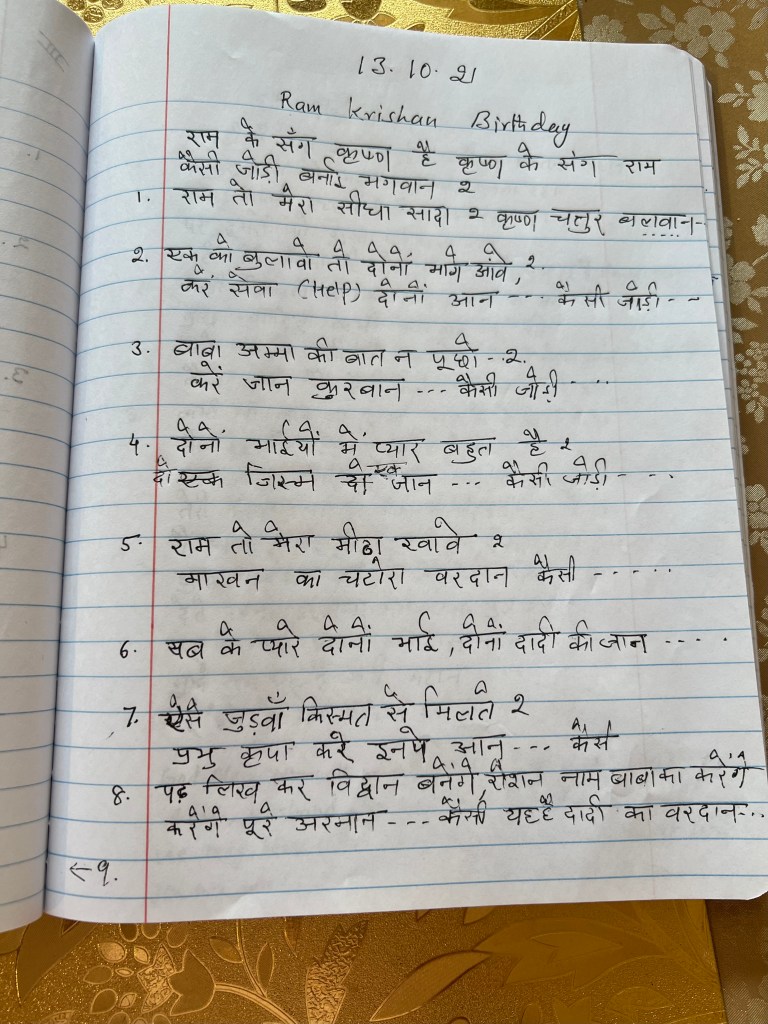 13.10.21
Ram Krishan Birthday
राम के संग कृष्ण है कृष्ण के संग राम
कैसी जोड़ी बनाई भगवान २
1. राम तो मेरा सीधा सादा २ कृष्ण चतुर बलवान--
2. एक को बुलावो तो दोनों भागे आवे, २.
करें सेवा (Help) दोनों आन --- कैसी जोड़ी --
3. बाबा अम्मा की बात न पूछो -- २.
करें जान कुरबान --- कैसी जोड़ी ----
4. दोनों भाईयों में प्यार बहुत है २
दो जिस्म एक जान --- कैसी जोड़ी ----
5. राम तो मेरा मीठा खावे २
माखन का चटोरा वरदान कैसी -----
6. सब के प्यारे दोनों भाई, दोनों दादी की जान ----
7. ऐसे जुड़वाँ किस्मत से मिलते २
प्रभु कृपा करे इनपे आन --- कैसी
8. पढ़ लिख कर विद्वान बनेंगे, रौशन नाम बाबा का करेंगे
करेंगे पूरे अरमान --- कैसी यह है दादी का वरदान---
←9.